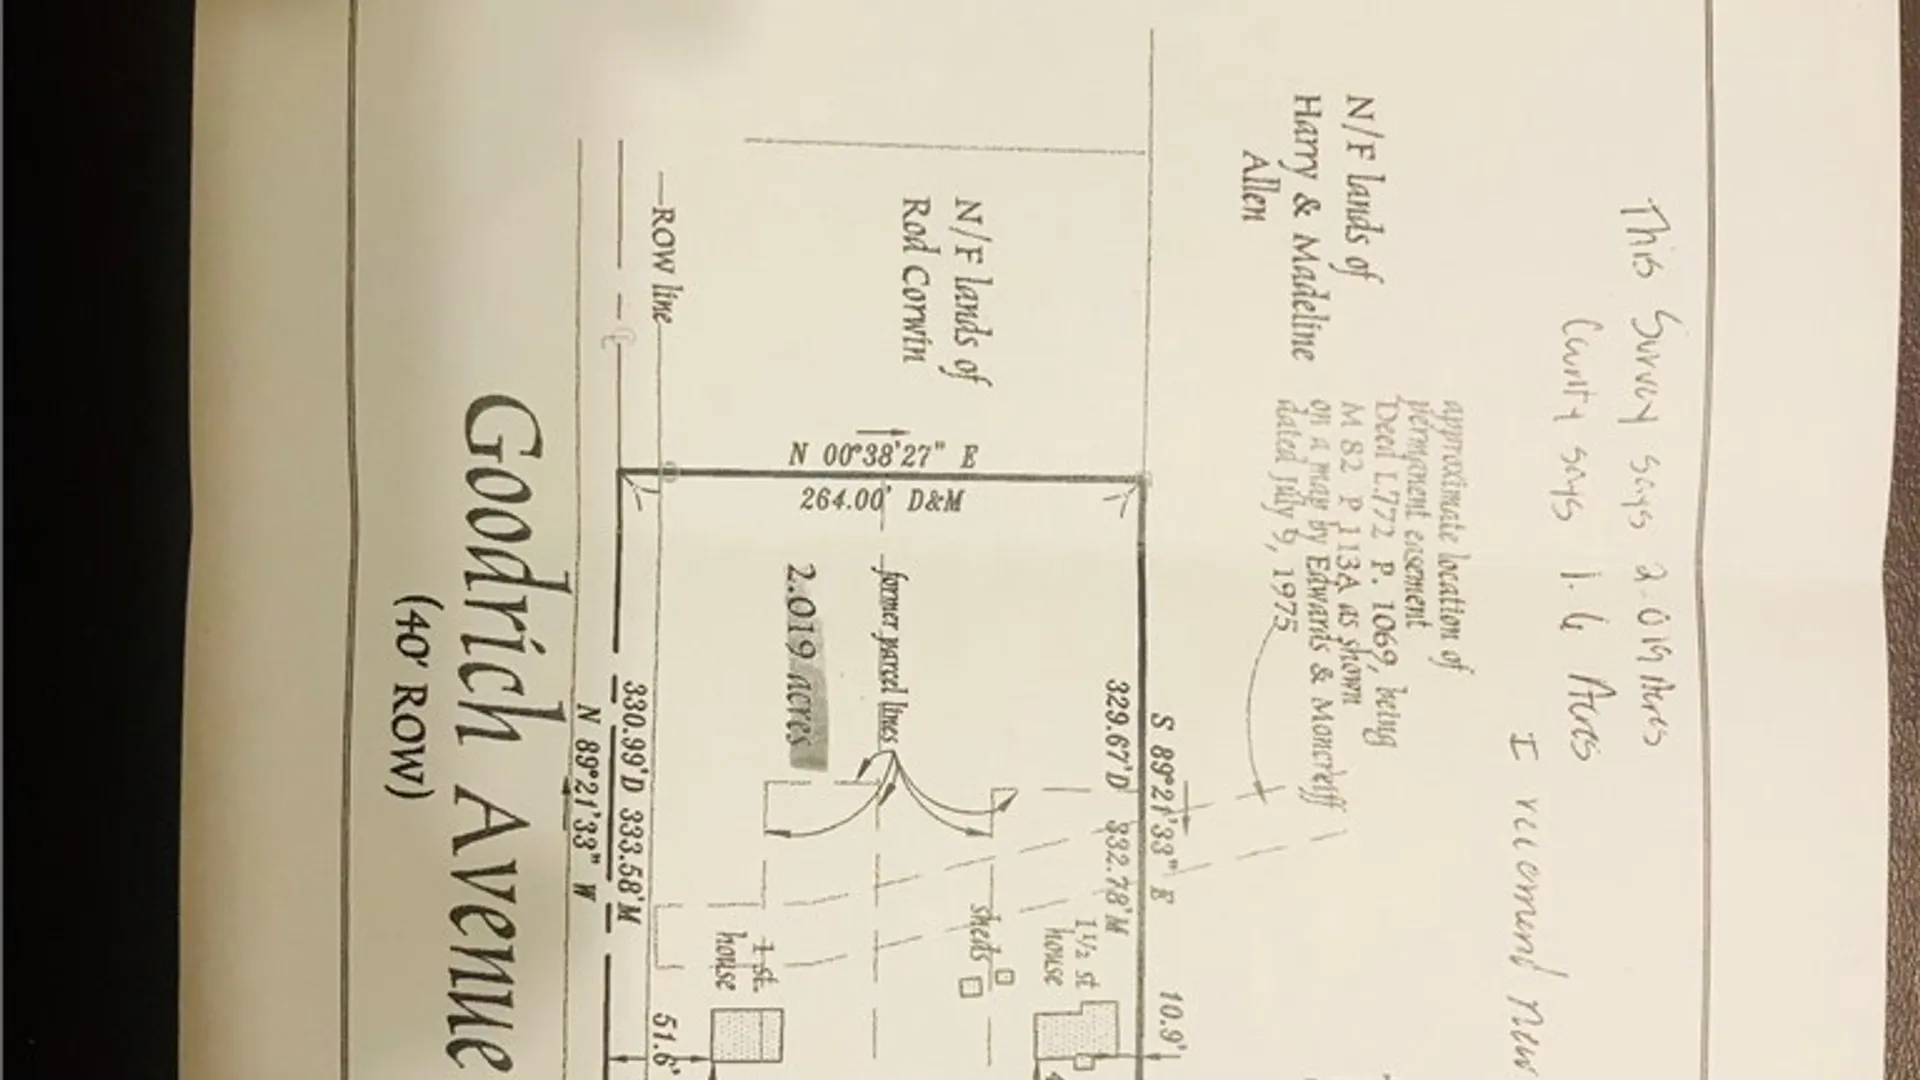 This Survey says 2.019 Acres
County says 1.6 Acres
I recomend new
N/F lands of
Harry & Madeline
Allen
approximate location of
permanent easement
Deed L.772 P. 1069, being
M 82 P 113A as shown
on a map by Edwards & Moncreiff
dated July 9, 1975
S 89°21'33" E
10.9'
329.67'D 332.78'M
1½ st
house
N/F lands of
Rod Corwin
sheds
N 00°38'27" E
264.00' D&M
former parcel lines
2.019 acres
1 st.
house
ROW line
51.6'
330.99'D 333.58'M
N 89°21'33" W
Goodrich Avenue
(40' ROW)